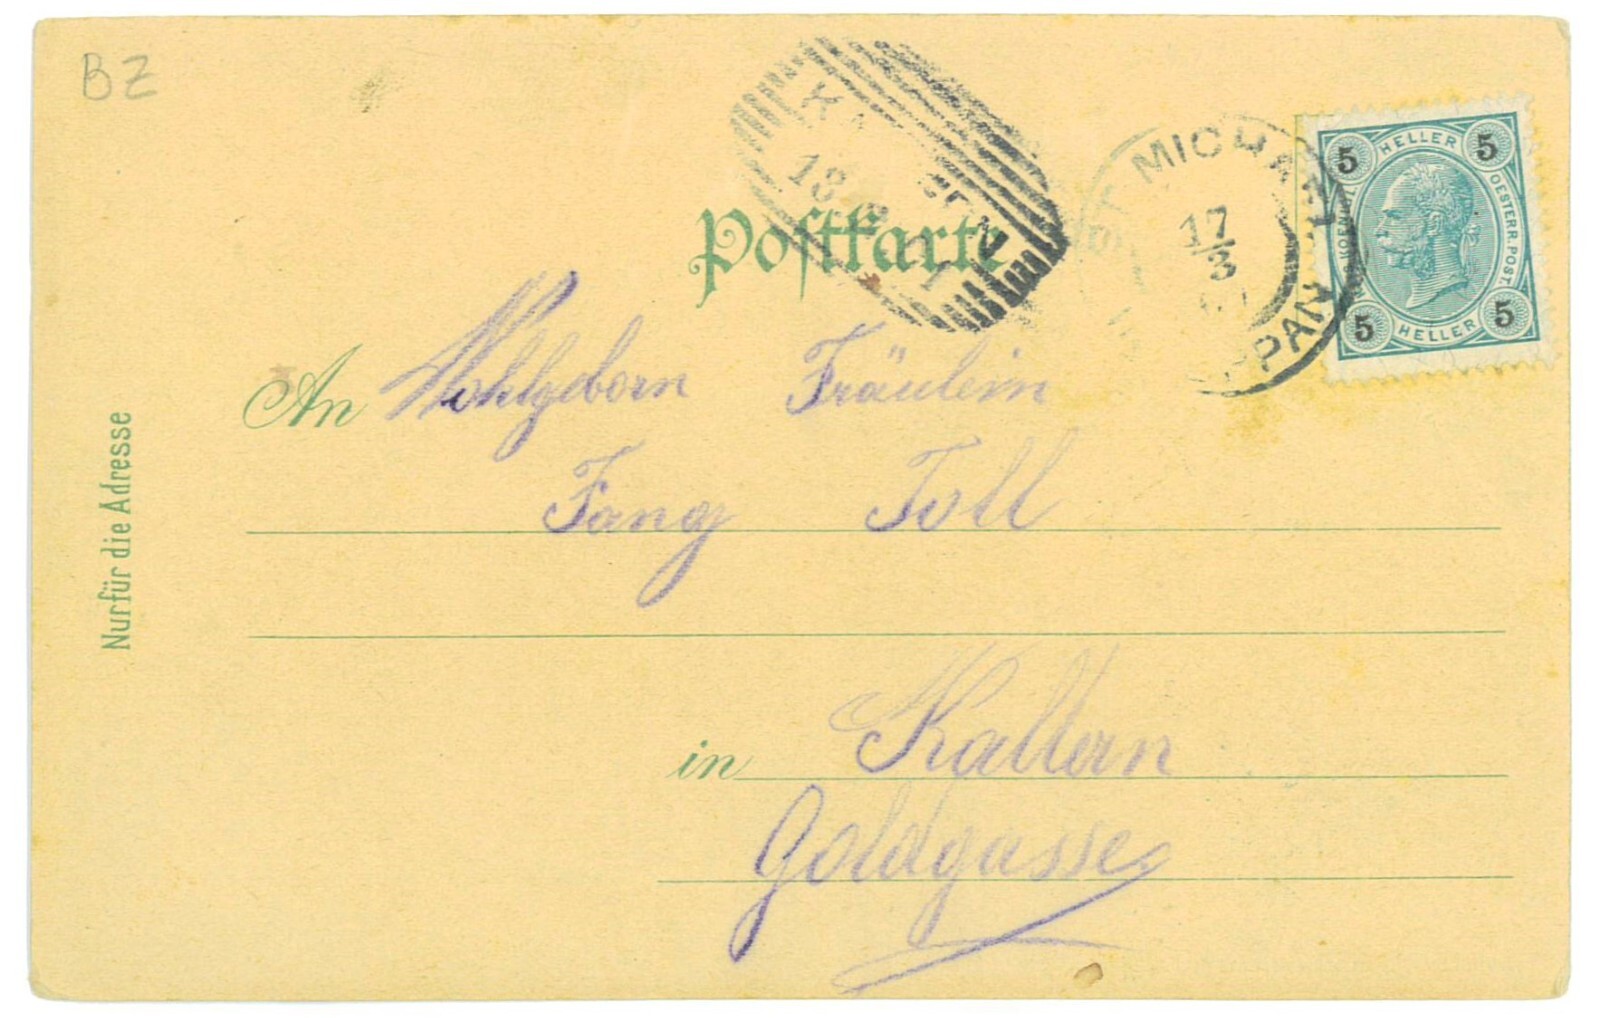 BZ
ST. MICHAEL
17/3
EPPAN
HELLER
5 5
OESTERR. POST
5 5
HELLER
18
Postkarte
An Wohlgeborn Fräulein
Fany Toll
in Kaltern
Goldgasse
Nur für die Adresse